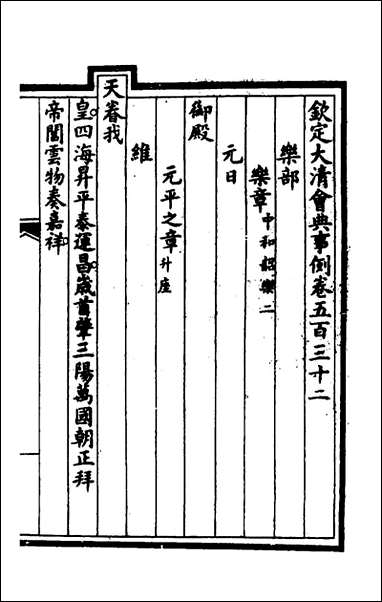 欽定大清會典事例卷五百三十二
樂部
樂章中和韶樂二
元日
御殿
元平之章升座
維
天眷我
皇四海昇平泰運昌歲首肇三陽萬國朝正拜
帝閽雲物奏嘉祥